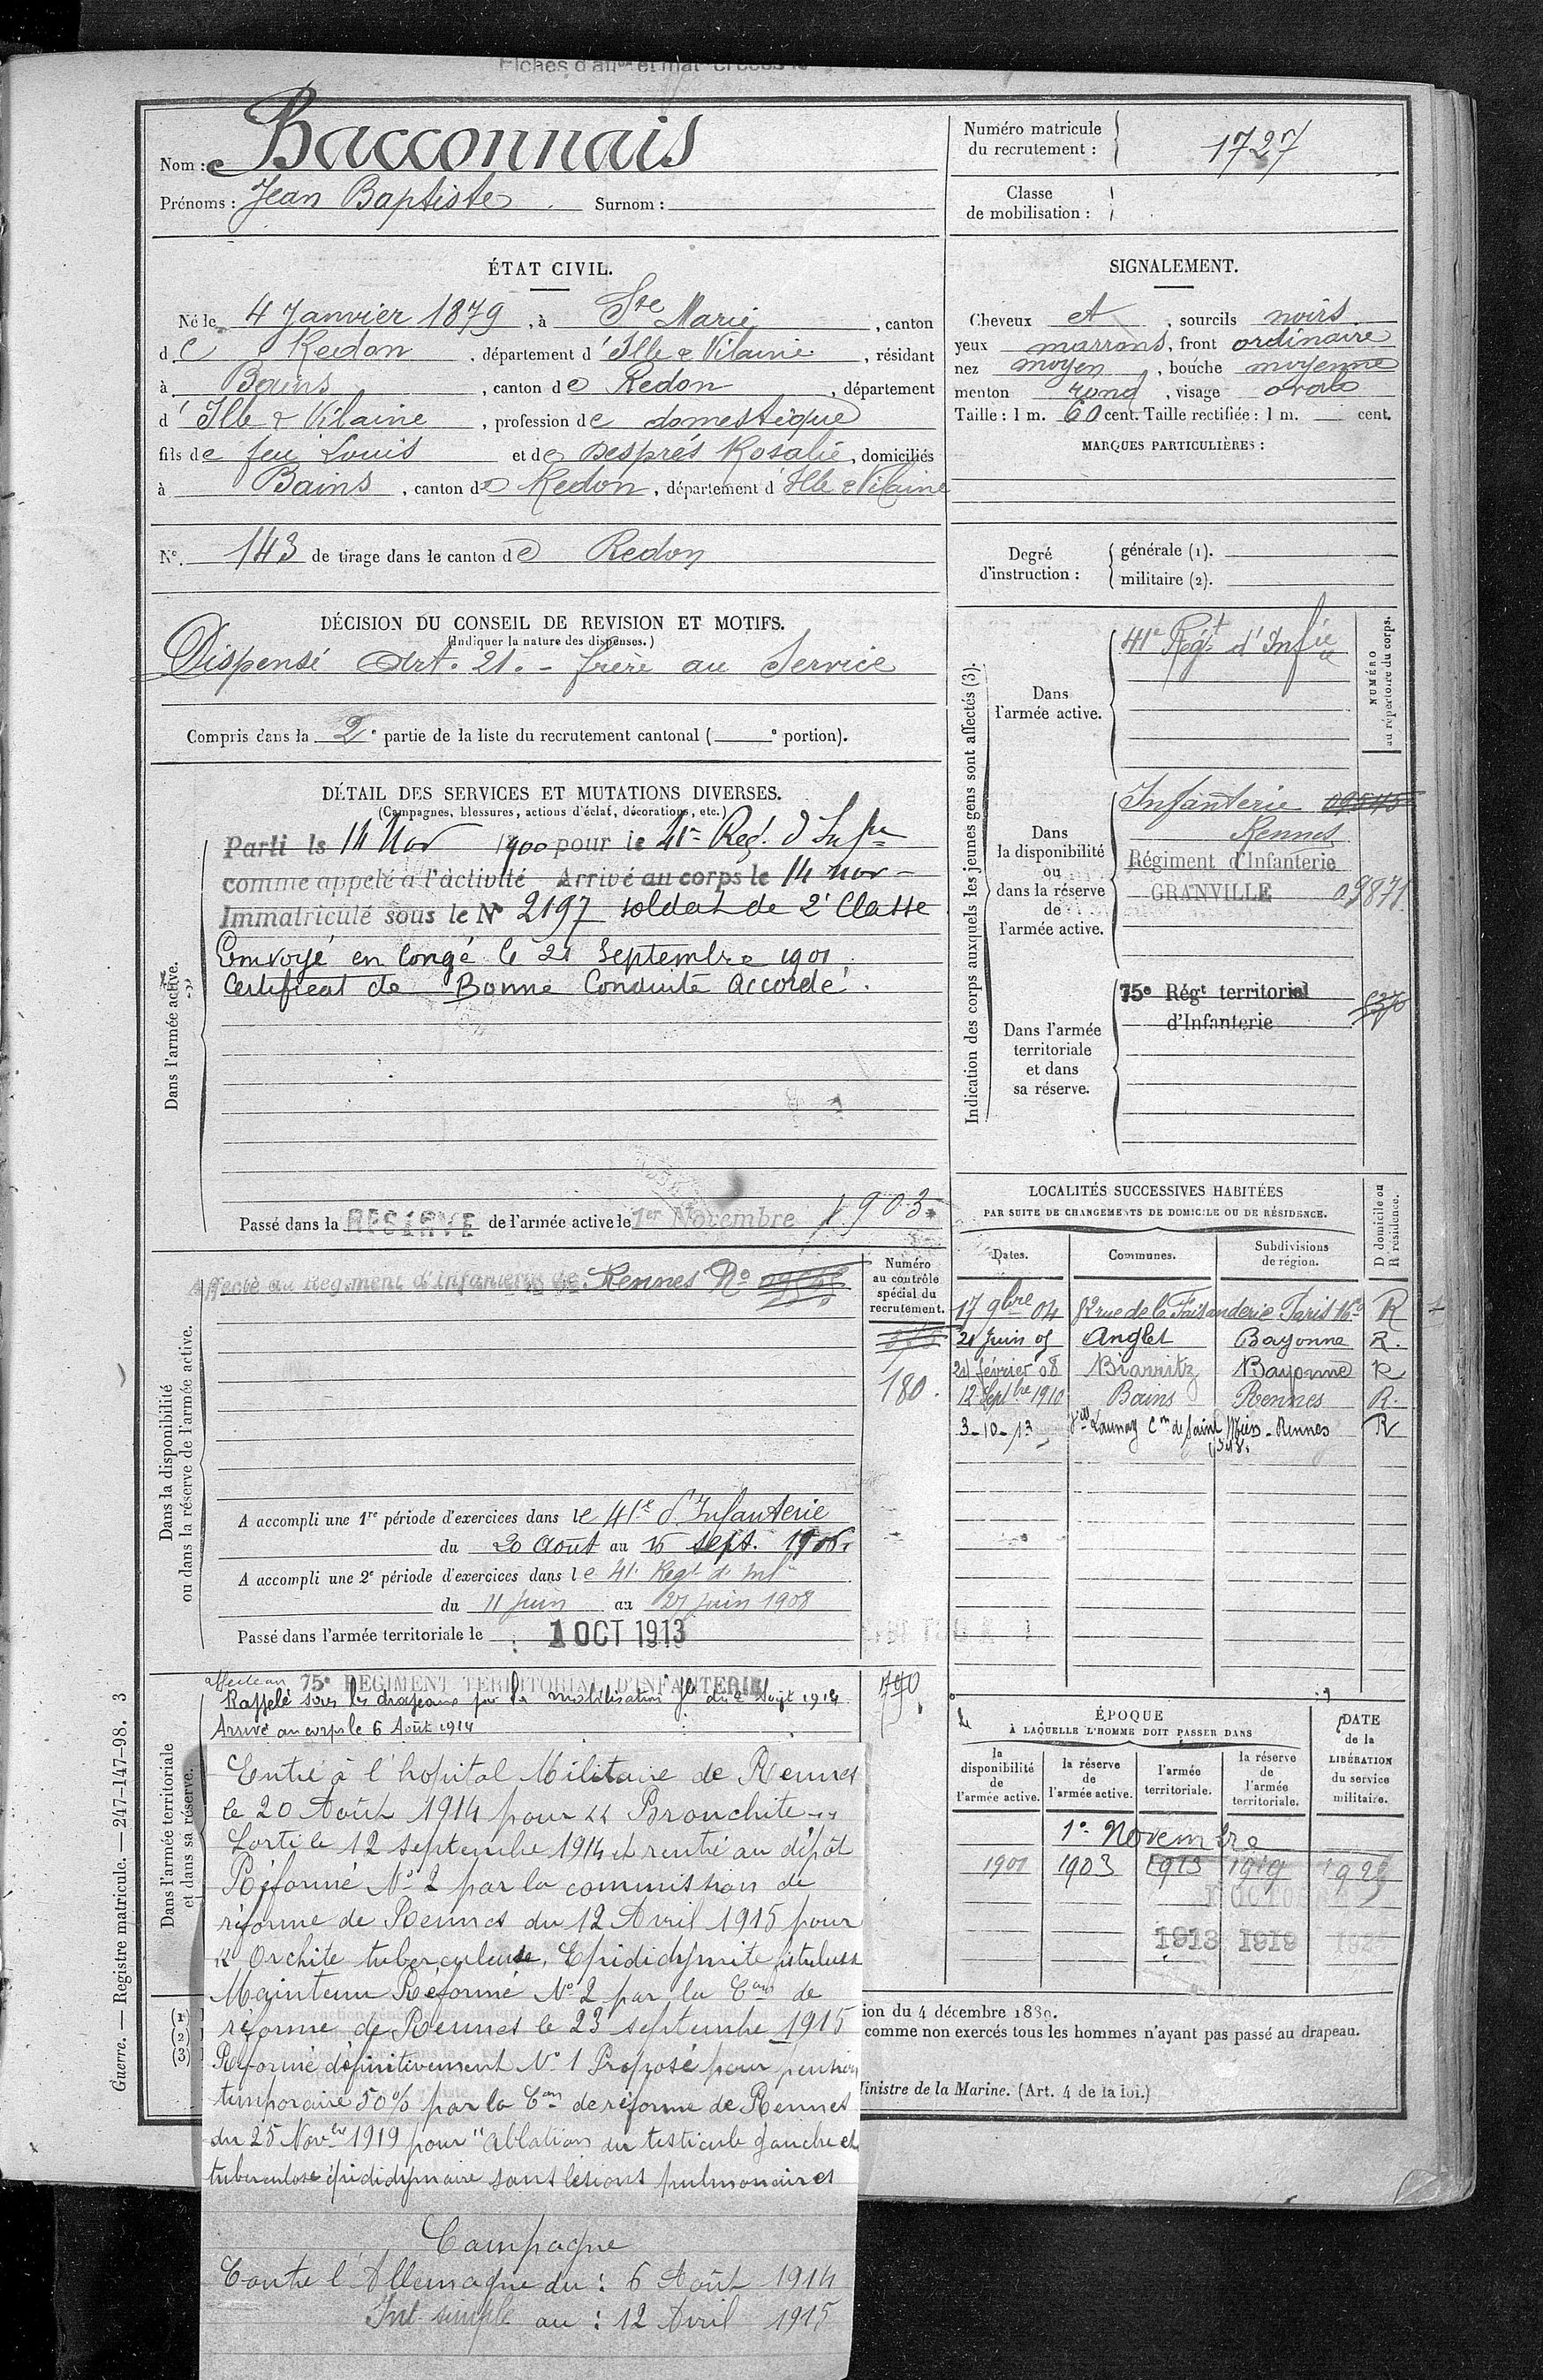 Fiches d'aff
Nom : Bacconnais
Prénoms : Jean Baptiste Surnom :
ÉTAT CIVIL.
Né le 4 Janvier 1879, à Ste Marie, canton
de Redon, département d'Ille & Vilaine, résidant
à Bains, canton de Redon, département
d'Ille & Vilaine, profession de domestique
fils de feu Louis et de Després Rosalie, domiciliés
à Bains, canton de Redon, département d'Ille & Vilaine
N° 143 de tirage dans le canton de Redon
DÉCISION DU CONSEIL DE REVISION ET MOTIFS.
(Indiquer la nature des dispenses.)
Dispensé Art. 21. - frère au Service
Compris dans la 2e partie de la liste du recrutement cantonal ( e portion).
DÉTAIL DES SERVICES ET MUTATIONS DIVERSES.
(Campagnes, blessures, actions d'éclat, décorations, etc.)
Dans l'armée active.
Parti le 14 Nov 1900 pour le 41e Reg. d'Infie
comme appelé à l'activité Arrivé au corps le 14 nov
Immatriculé sous le N° 2197 soldat de 2e Classe
Envoyé en Congé le 21 Septembre 1901
Certificat de Bonne Conduite Accordé.
Passé dans la RÉSERVE de l'armée active le 1er Novembre 1903.
Dans la disponibilité
ou dans la réserve de l'armée active.
Affecté au Régiment d'Infanterie de Rennes N°
Numéro
au contrôle
spécial du
recrutement.
180.
A accompli une 1re période d'exercices dans le 41e d'Infanterie
du 20 Août au 16 sept. 1906.
A accompli une 2e période d'exercices dans le 41e Regt d'Infie
du 11 Juin au 27 juin 1908
Passé dans l'armée territoriale le 1 OCT 1913
Dans l'armée territoriale
et dans sa réserve.
affecté au 75e REGIMENT TERRITORIAL D'INFANTERIE
Rappelé sous les drapeaux par la mobilisation gle du 2 Août 1914
Arrivé au corps le 6 Août 1914
Entré à l'hopital Militaire de Rennes
le 20 Août 1914 pour "Bronchite"
Sorti le 12 septembre 1914 et rentré au dépôt
Réformé N° 2 par la commission de
réforme de Rennes du 12 Avril 1915 pour
"Orchite tuberculeuse, Epididymite fistuleuse
Maintenu Réformé N° 2 par la Con de
réforme de Rennes le 23 septembre 1915
Réformé définitivement N° 1 Proposé pour pension
temporaire 50% par la Con de réforme de Rennes
du 25 Novbre 1919 pour "Ablation du testicule gauche et
tuberculose épididymaire sans lésions pulmonaires
Campagne
Contre l'Allemagne du : 6 Août 1914
Int. simple au : 12 Avril 1915
Guerre. — Registre matricule. — 247-147-98. 3
(1)
(2)
(3)
Numéro matricule
du recrutement : 1727
Classe
de mobilisation :
SIGNALEMENT.
Cheveux et, sourcils noirs
yeux marrons, front ordinaire
nez moyen, bouche moyenne
menton rond, visage ovale
Taille : 1 m. 60 cent. Taille rectifiée : 1 m. cent.
MARQUES PARTICULIÈRES :
Degré
d'instruction :
générale (1).
militaire (2).
Indication des corps auxquels les jeunes gens sont affectés (3).
NUMÉRO
au répertoire du corps.
Dans
l'armée active.
41e Régt d'Infie
Dans
la disponibilité
ou
dans la réserve
de
l'armée active.
Infanterie
Rennes
Régiment d'Infanterie
GRANVILLE 09871
Dans l'armée
territoriale
et dans
sa réserve.
75e Régt territorial
d'Infanterie
LOCALITÉS SUCCESSIVES HABITÉES
PAR SUITE DE CHANGEMENTS DE DOMICILE OU DE RÉSIDENCE.
Dates. Communes. Subdivisions de région. D domicile ou R résidence.
17 9bre 04 rue de la Faisanderie Paris 16e R
21 Juin 05 Anglet Bayonne R.
21 février 08 Biarritz Bayonne R
12 Septbre 1910 Bains Rennes R.
3-10-13 Launay Cne de Saint - Rennes R
ÉPOQUE
À LAQUELLE L'HOMME DOIT PASSER DANS
la disponibilité de l'armée active.
la réserve de l'armée active.
l'armée territoriale.
la réserve de l'armée territoriale.
DATE
de la
LIBÉRATION
du service
militaire.
1er Novembre
1901 1903 1913 1919
1913 1919
ion du 4 décembre 1889.
comme non exercés tous les hommes n'ayant pas passé au drapeau.
Ministre de la Marine. (Art. 4 de la loi.)